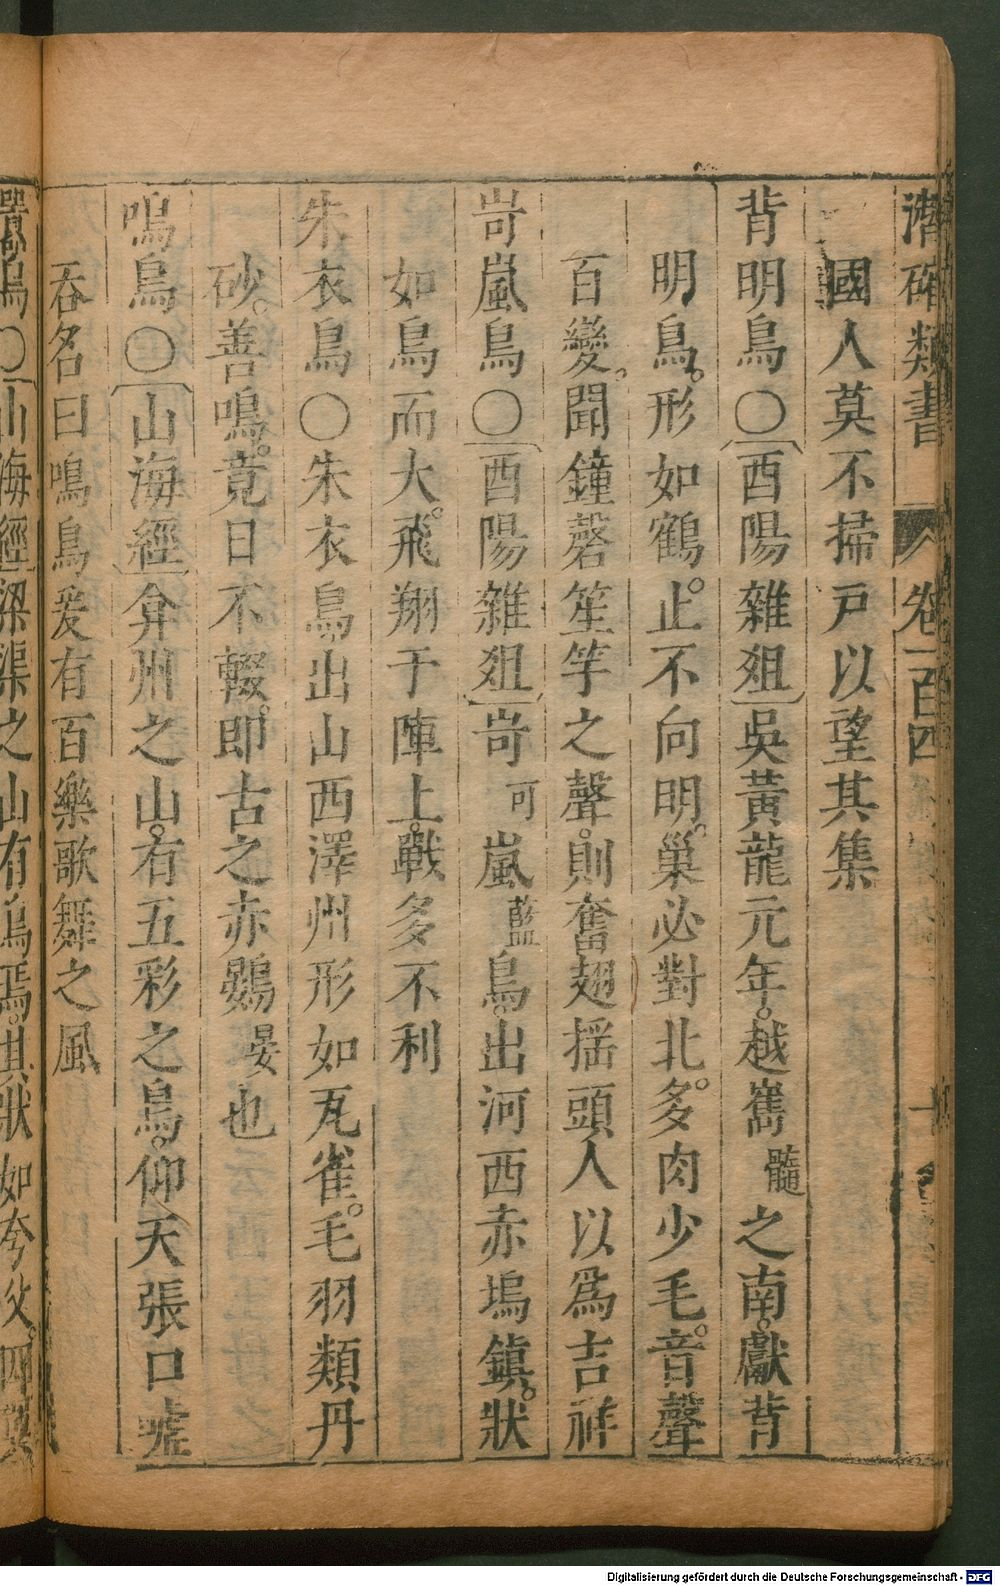 潛確類書 卷一百四
國人莫不掃戸以望其集
背明鳥〇〔酉陽雜爼〕吳黃龍元年。越嶲髓之南。獻背
明鳥。形如鶴。止不向明。巢必對北。多肉少毛。音聲
百變。聞鐘磬笙竽之聲。則奮翅揺頭人以爲吉祥
岢嵐鳥〇〔酉陽雜爼〕岢可嵐藍鳥。出河西赤塢鎮。狀
如鳥而大。飛翔于陣上。戰多不利
朱衣鳥〇朱衣鳥出山西澤州形如瓦雀。毛羽類丹
砂。善鳴。竟日不輟。即古之赤鷃晏也
鳴鳥〇〔山海經〕弇州之山。有五彩之鳥。仰天張口噓
吞名曰鳴鳥爰有百樂歌舞之風
鳥〇〔山海經〕梁渠之山有鳥焉。其狀如夸父。四翼
Digitalisierung gefördert durch die Deutsche Forschungsgemeinschaft - DFG